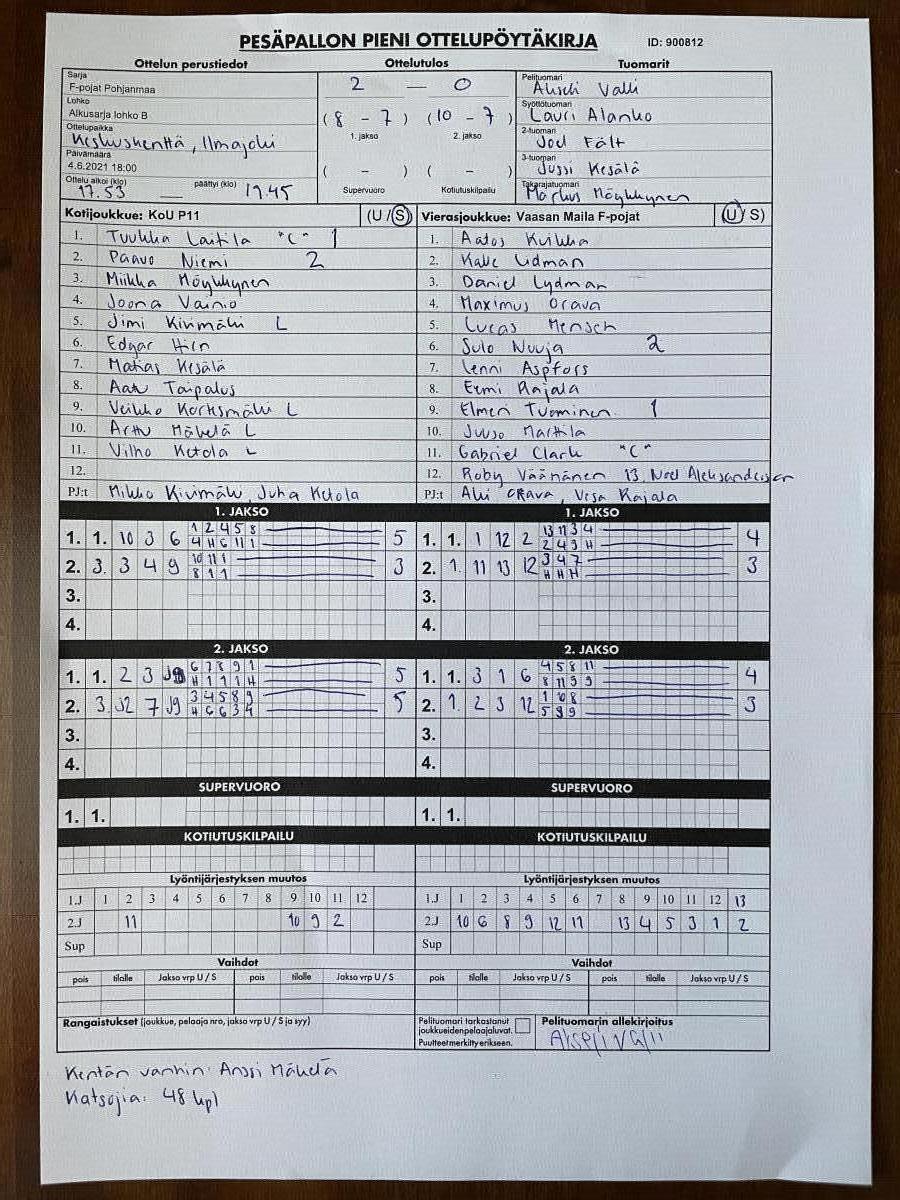 PESÄPALLON PIENI OTTELUPÖYTÄKIRJA ID: 900812
Ottelun perustiedot Ottelutulos Tuomarit
Sarja
F-pojat Pohjanmaa
Lohko
Alkusarja lohko B
Ottelupaikka
Keskuskenttä, Ilmajoki
Päivämäärä
4.6.2021 18:00
Ottelu alkoi (klo) päättyi (klo)
17.53 — 19.45
2 — 0
(8 - 7) (10 - 7)
1. jakso 2. jakso
( - ) ( - )
Supervuoro Kotiutuskilpailu
Pelituomari
Valli
Syöttötuomari
Lauri Alanko
2-tuomari
Joel Fält
3-tuomari
Jussi Kesälä
Takarajatuomari
Markus Möykkynen
Kotijoukkue: KoU P11 (U / S)
1. Tuukka Laitila "C" 1
2. Paavo Niemi 2
3. Miikka Möykkynen
4. Joona Vainio
5. Jimi Kivimäki L
6. Edgar Hirn
7. Matias Kesälä
8. Aatu Taipalus
9. Veikko Kortesmäki L
10. Arttu Mäkelä L
11. Vilho Ketola L
12.
PJ:t Mikko Kivimäki, Juha Ketola
Vierasjoukkue: Vaasan Maila F-pojat (U / S)
1. Aatos Kvikka
2. Kalle Lidman
3. Daniel Lydman
4. Maximus Orava
5. Lucas Mensch
6. Sulo Nuuja 2
7. Lenni Aspfors
8. Eemi Rajala
9. Elmeri Tuominen 1
10. Juuso Marttila
11. Gabriel Clark "C"
12. Roby Väänänen 13. Noel Aleksandersen
PJ:t Aki Orava, Vesa Rajala
1. JAKSO 1. JAKSO
1. 1. 10 3 6 1 2 4 5 8 5
4 H 6 11 1
2. 3. 3 4 9 10 11 1 3
8 1 1
3.
4.
1. 1. 1 12 2 13 11 3 4 4
2 4 9 H
2. 1. 11 13 12 3 4 7 3
H H H
3.
4.
2. JAKSO 2. JAKSO
1. 1. 2 3 J9 6 7 8 9 1 5
H 1 1 1 H
2. 3. J2 7 J9 3 4 5 8 9 5
H 6 6 3 4
3.
4.
1. 1. 3 1 6 4 5 8 11 4
8 11 9 9
2. 1. 2 3 12 1 10 8 3
5 9 9
3.
4.
SUPERVUORO SUPERVUORO
1. 1. 1. 1.
KOTIUTUSKILPAILU KOTIUTUSKILPAILU
Lyöntijärjestyksen muutos Lyöntijärjestyksen muutos
1.J 1 2 3 4 5 6 7 8 9 10 11 12
2.J 11 10 9 2
Sup
1.J 1 2 3 4 5 6 7 8 9 10 11 12 13
2.J 10 6 8 9 12 11 13 4 5 3 1 2
Sup
Vaihdot Vaihdot
pois tilalle Jakso vrp U / S pois tilalle Jakso vrp U / S
pois tilalle Jakso vrp U / S pois tilalle Jakso vrp U / S
Rangaistukset (joukkue, pelaaja nro, jakso vrp U / S ja syy)
Pelituomari tarkastanut
joukkueidenpelaajaluvat.
Puutteetmerkittyerikseen.
Pelituomarin allekirjoitus
Akseli Valli
Kentän vanhin: Anssi Mäkelä
Katsojia: 48 kpl